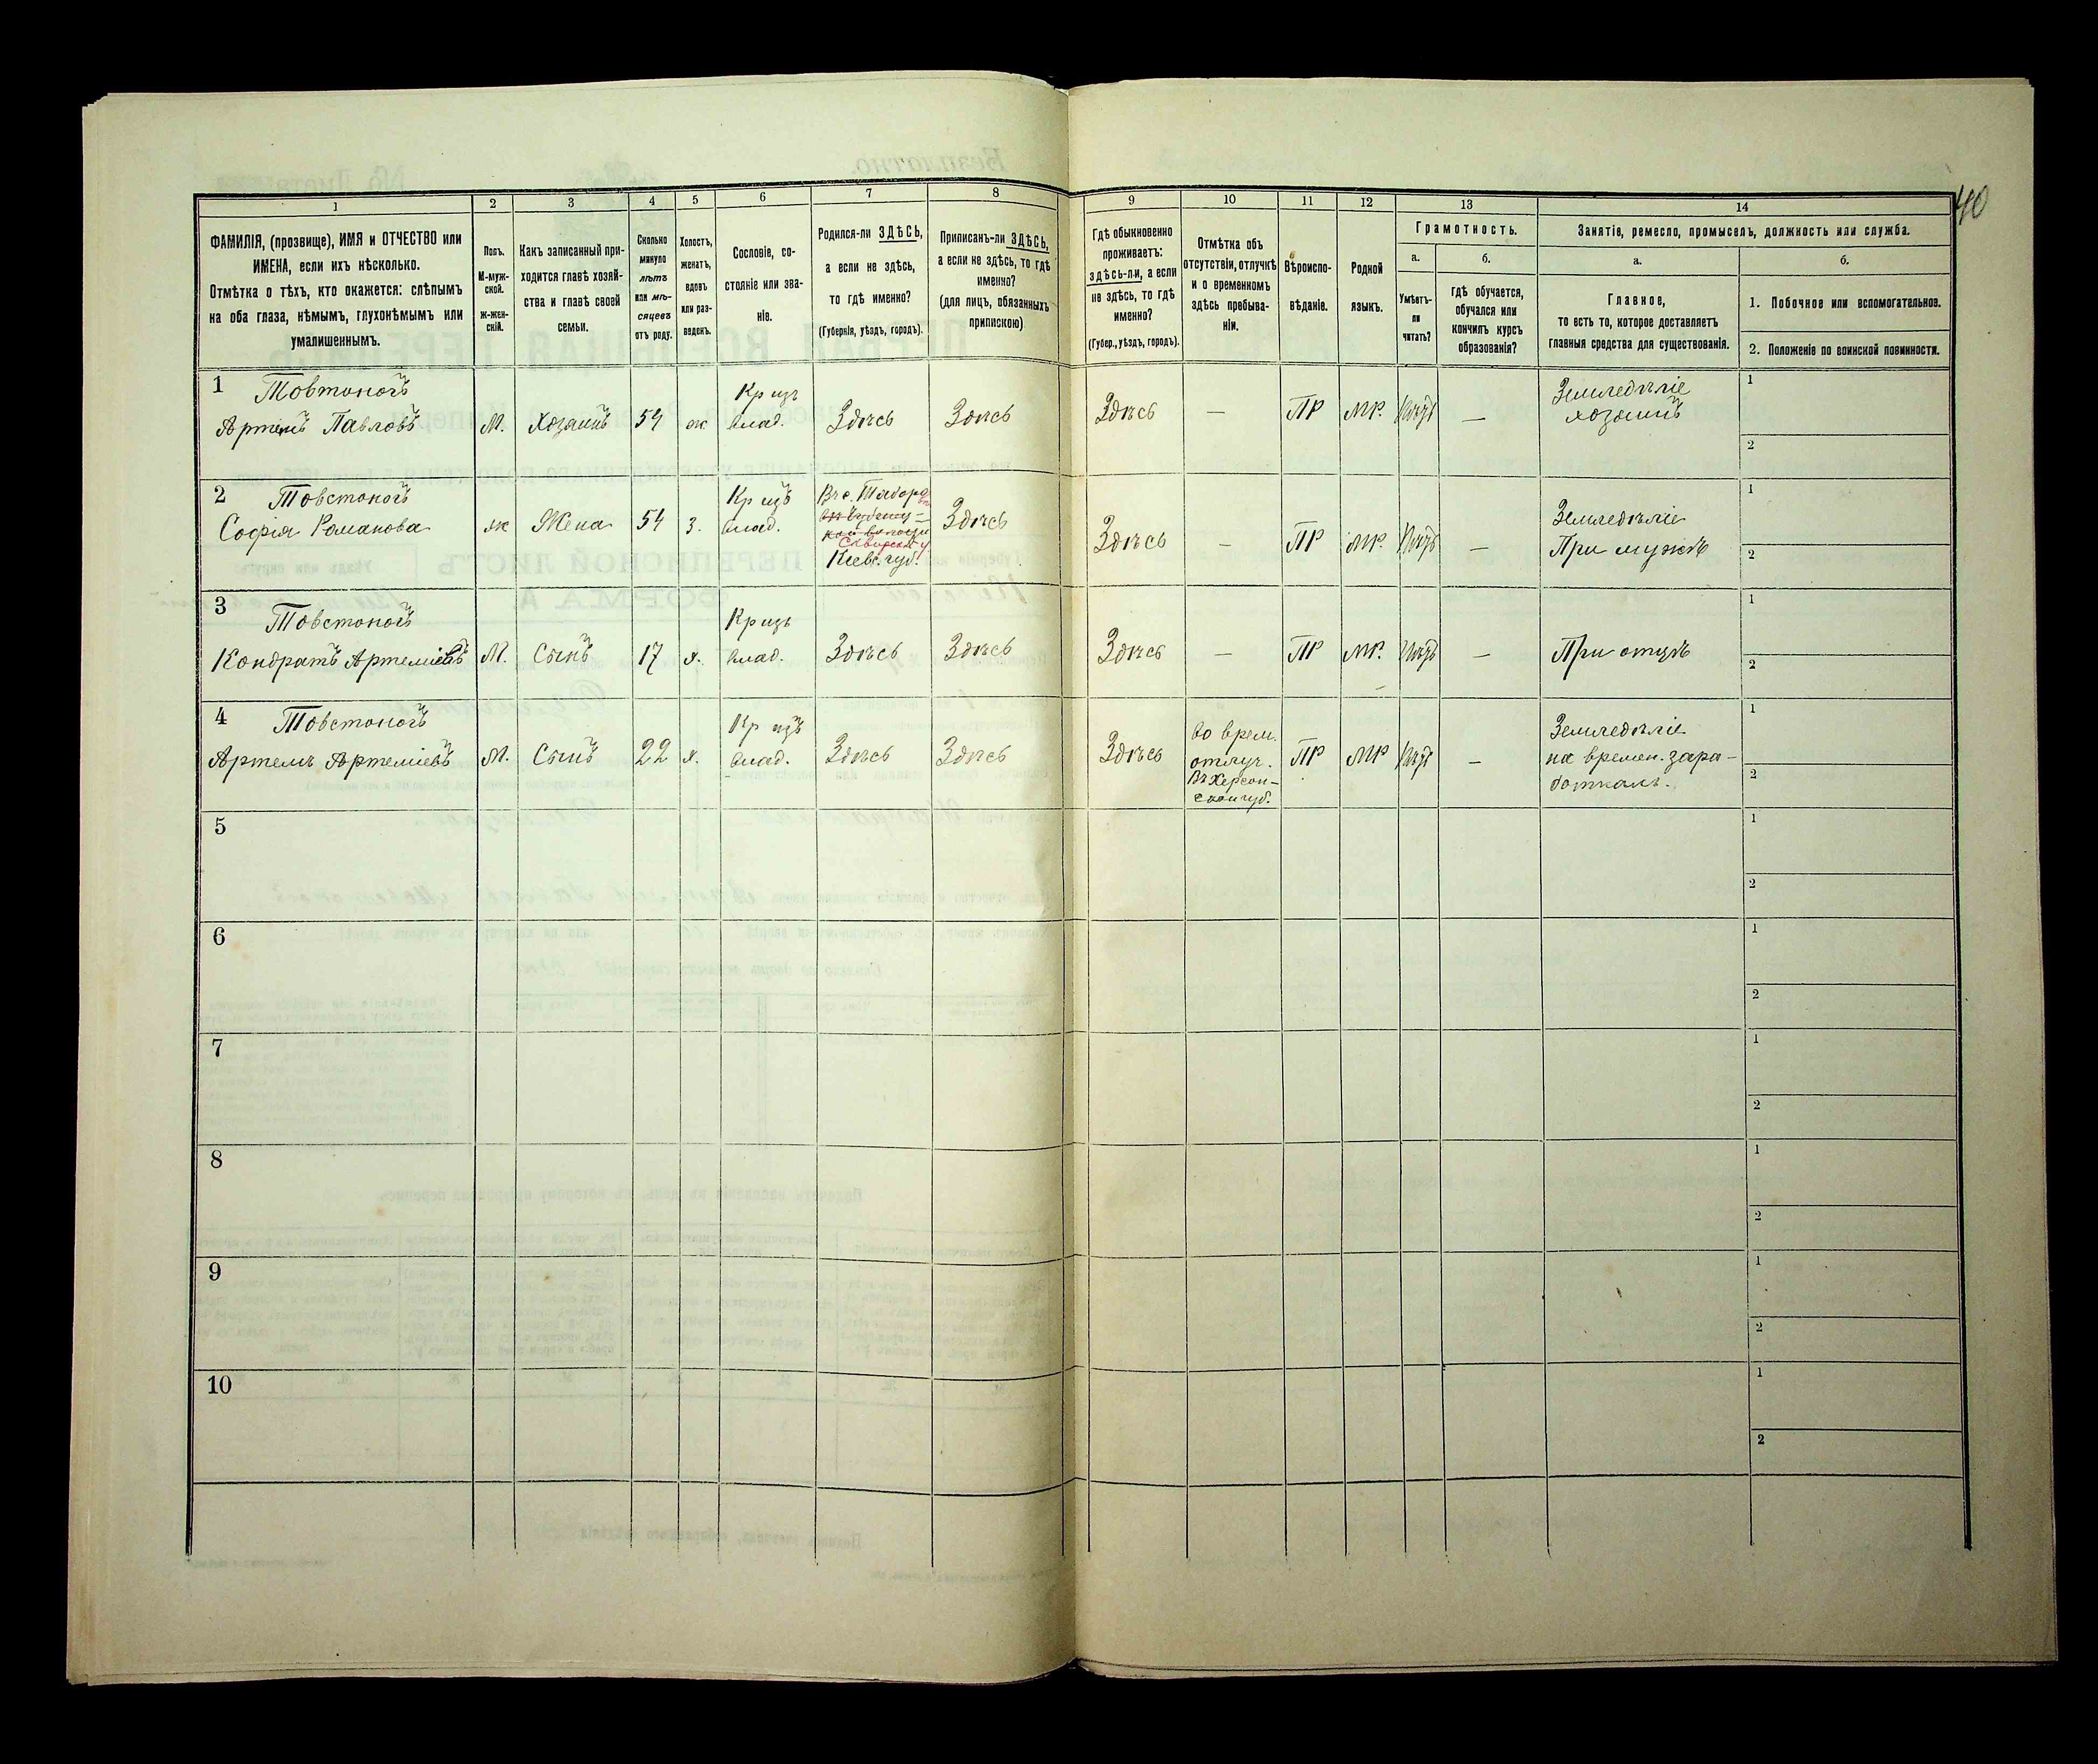 40
1
ФАМИЛІЯ, (прозвище), ИМЯ и ОТЧЕСТВО или
ИМЕНА, если ихъ нѣсколько.
Отмѣтка о тѣхъ, кто окажется: слѣпымъ
на оба глаза, нѣмымъ, глухонѣмымъ или
умалишеннымъ.
2
Полъ.
М-муж-
ской.
ж-жен-
скій.
3
Какъ записанный при-
ходится главѣ хозяй-
ства и главѣ своей
семьи.
4
Сколько
минуло
лѣтъ
или мѣ-
сяцевъ
отъ роду.
5
Холостъ,
женатъ,
вдовъ
или раз-
веденъ.
6
Сословіе, со-
стояніе или зва-
ніе.
7
Родился-ли ЗДѢСЬ,
а если не здѣсь,
то гдѣ именно?
(Губернія, уѣздъ, городъ).
8
Приписанъ-ли ЗДѢСЬ,
а если не здѣсь, то гдѣ
именно?
(для лицъ, обязанныхъ
припискою)
9
Гдѣ обыкновенно
проживаетъ:
здѣсь-ли, а если
не здѣсь, то гдѣ
именно?
(Губер., уѣздъ, городъ).
10
Отмѣтка объ
отсутствіи, отлучкѣ
и о временномъ
здѣсь пребыва-
ніи.
11
Вѣроиспо-
вѣданіе.
12
Родной
языкъ.
13
Грамотность.
а.
Умѣетъ-
ли
читать?
б.
гдѣ обучается,
обучался или
кончилъ курсъ
образованія?
14
Занятіе, ремесло, промыселъ, должность или служба.
а.
Главное,
то есть то, которое доставляетъ
главныя средства для существованія.
б.
1. Побочное или вспомогательное.
2. Положеніе по воинской повинности.
1 Товтоногъ
Артемъ Павловъ
М.
Хозяинъ
54
ж
Кр изъ
влад.
Здѣсь
Здѣсь
Здѣсь
—
ПР
МР.
—
Земледѣліе
хозяинъ
1
2
2 Товстоногъ
Софія Романова
ж
Жена
54
З.
Кр изъ
влад.
Кіевс. губ.
Здѣсь
Здѣсь
—
ПР
МР.
—
Земледѣліе
При мужѣ
1
2
3
Товстоногъ
Кондратъ Артеміевъ
М.
Сынъ
17
х.
Кр изъ
влад.
Здѣсь
Здѣсь
Здѣсь
—
ПР
МР.
—
При отцѣ
1
2
4 Товстоногъ
Артемъ Артеміевъ
М.
Сынъ
22
х.
Кр изъ
влад.
Здѣсь
Здѣсь
Здѣсь
Во врем.
отлуч.
Въ Херсон-
ской губ.
ПР
МР
—
Земледѣліе
на времен. зара-
боткахъ.
1
2
5
1
2
6
1
2
7
1
2
8
1
2
9
1
2
10
1
2